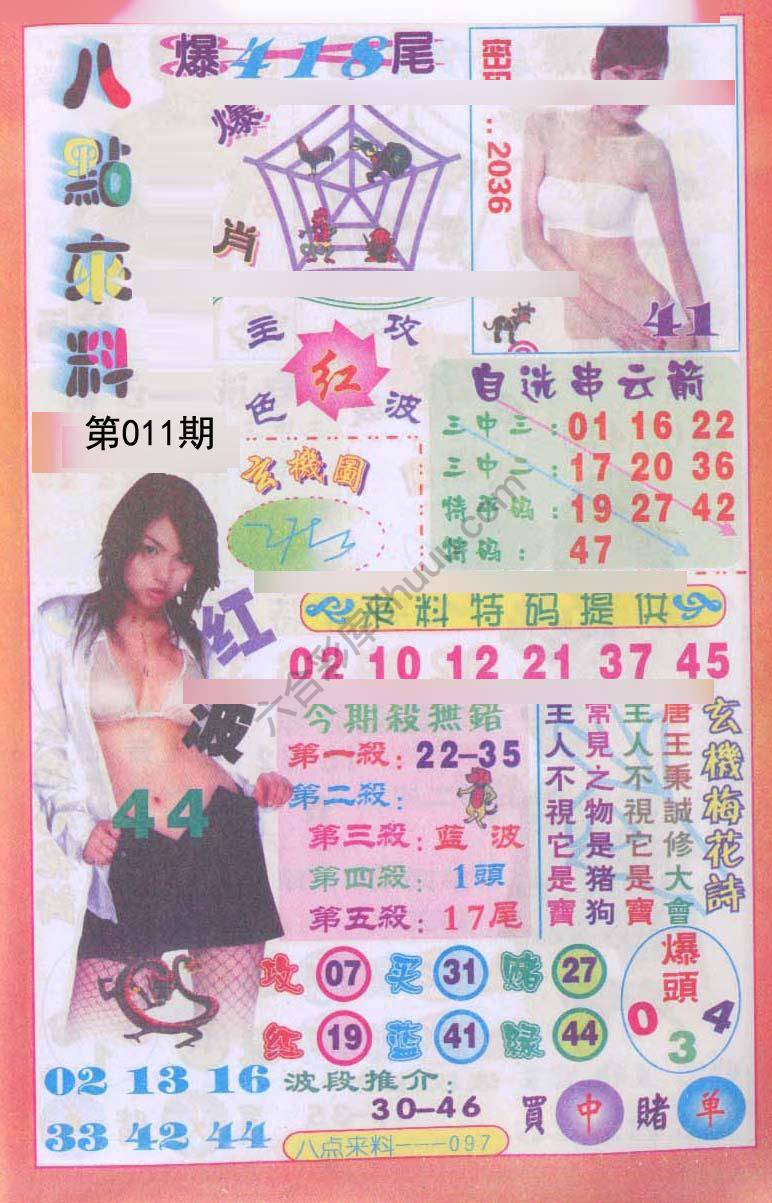 八點來料
爆418尾
爆肖
2036
41
主攻
红
色波
第011期
玄機圖
自选串云箭
三中三：01 16 22
三中二：17 20 36
特平码：19 27 42
特码：47
来料特码提供
02 10 12 21 37 45
红波
44
今期殺無錯
第一殺：22-35
第二殺：
第三殺：蓝波
第四殺：1頭
第五殺：17尾
玄機梅花詩
唐王秉誠修大會
主人不視它是寶
常見之物是猪狗
主人不視它是寶
攻 07 买 31 赌 27
红 19 蓝 41 绿 44
爆頭
0 3 4
02 13 16
33 42 44
波段推介：
30-46
買中賭单
八点来料---097
六合彩库
.com